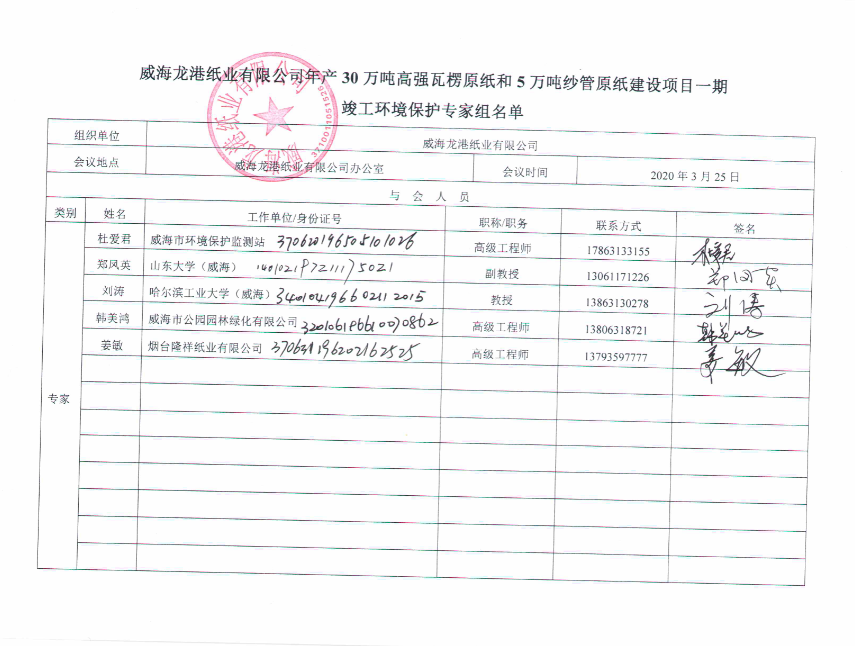 威海龙港纸业有限公司年产 30 万吨高强瓦楞原纸和 5 万吨纱管原纸建设项目一期
竣工环境保护专家组名单
组织单位 威海龙港纸业有限公司
会议地点 威海龙港纸业有限公司办公室 会议时间 2020 年 3 月 25 日
与 会 人 员
类别 姓名 工作单位/身份证号 职称/职务 联系方式 签名
杜爱君 威海市环境保护监测站 高级工程师 17863133155
郑凤英 山东大学（威海） 副教授 13061171226
刘涛 哈尔滨工业大学（威海） 教授 13863130278 刘涛
韩美鸿 威海市公园园林绿化有限公司 高级工程师 13806318721
姜敏 烟台隆祥纸业有限公司 高级工程师 13793597777 姜敏
专家